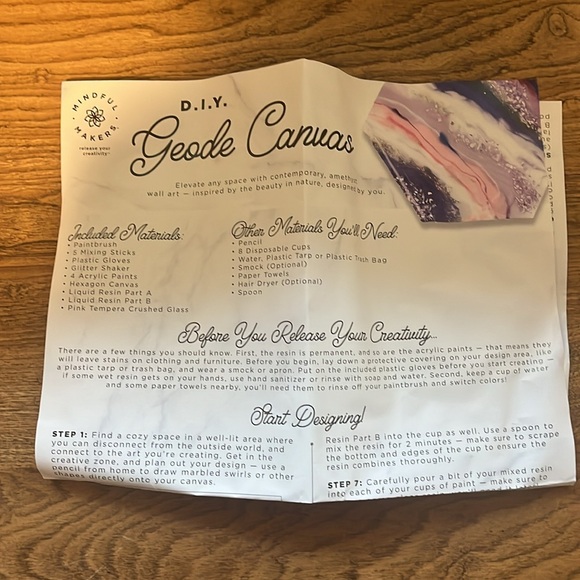 MINDFUL MAKERS
release your
creativity™
D.I.Y.
Geode Canvas
Elevate any space with contemporary, amethyst
wall art — inspired by the beauty in nature, designed by you.
Included Materials:
• Paintbrush
• 5 Mixing Sticks
• Plastic Gloves
• Glitter Shaker
• 4 Acrylic Paints
• Hexagon Canvas
• Liquid Resin Part A
• Liquid Resin Part B
• Pink Tempera Crushed Glass
Other Materials You'll Need:
• Pencil
• 8 Disposable Cups
• Water, Plastic Tarp or Plastic Trash Bag
• Smock (Optional)
• Paper Towels
• Hair Dryer (Optional)
• Spoon
Before You Release Your Creativity...
There are a few things you should know. First, the resin is permanent, and so are the acrylic paints — that means they
will leave stains on clothing and furniture. Before you begin, lay down a protective covering on your design area, like
a plastic tarp or trash bag, and wear a smock or apron. Put on the included plastic gloves before you start creating —
if some wet resin gets on your hands, use hand sanitizer or rinse with soap and water. Second, keep a cup of water
and some paper towels nearby, you'll need them to rinse off your paintbrush and switch colors!
Start Designing!
STEP 1: Find a cozy space in a well-lit area where
you can disconnect from the outside world, and
connect to the art you're creating. Get in the
creative zone, and plan out your design — use a
pencil from home to draw marbled swirls or other
shapes directly onto your canvas.
Resin Part B into the cup as well. Use a spoon to
mix the resin for 2 minutes — make sure to scrape
the bottom and edges of the cup to ensure the
resin combines thoroughly.
STEP 7: Carefully pour a bit of your mixed resin
into each of your cups of paint — make sure to